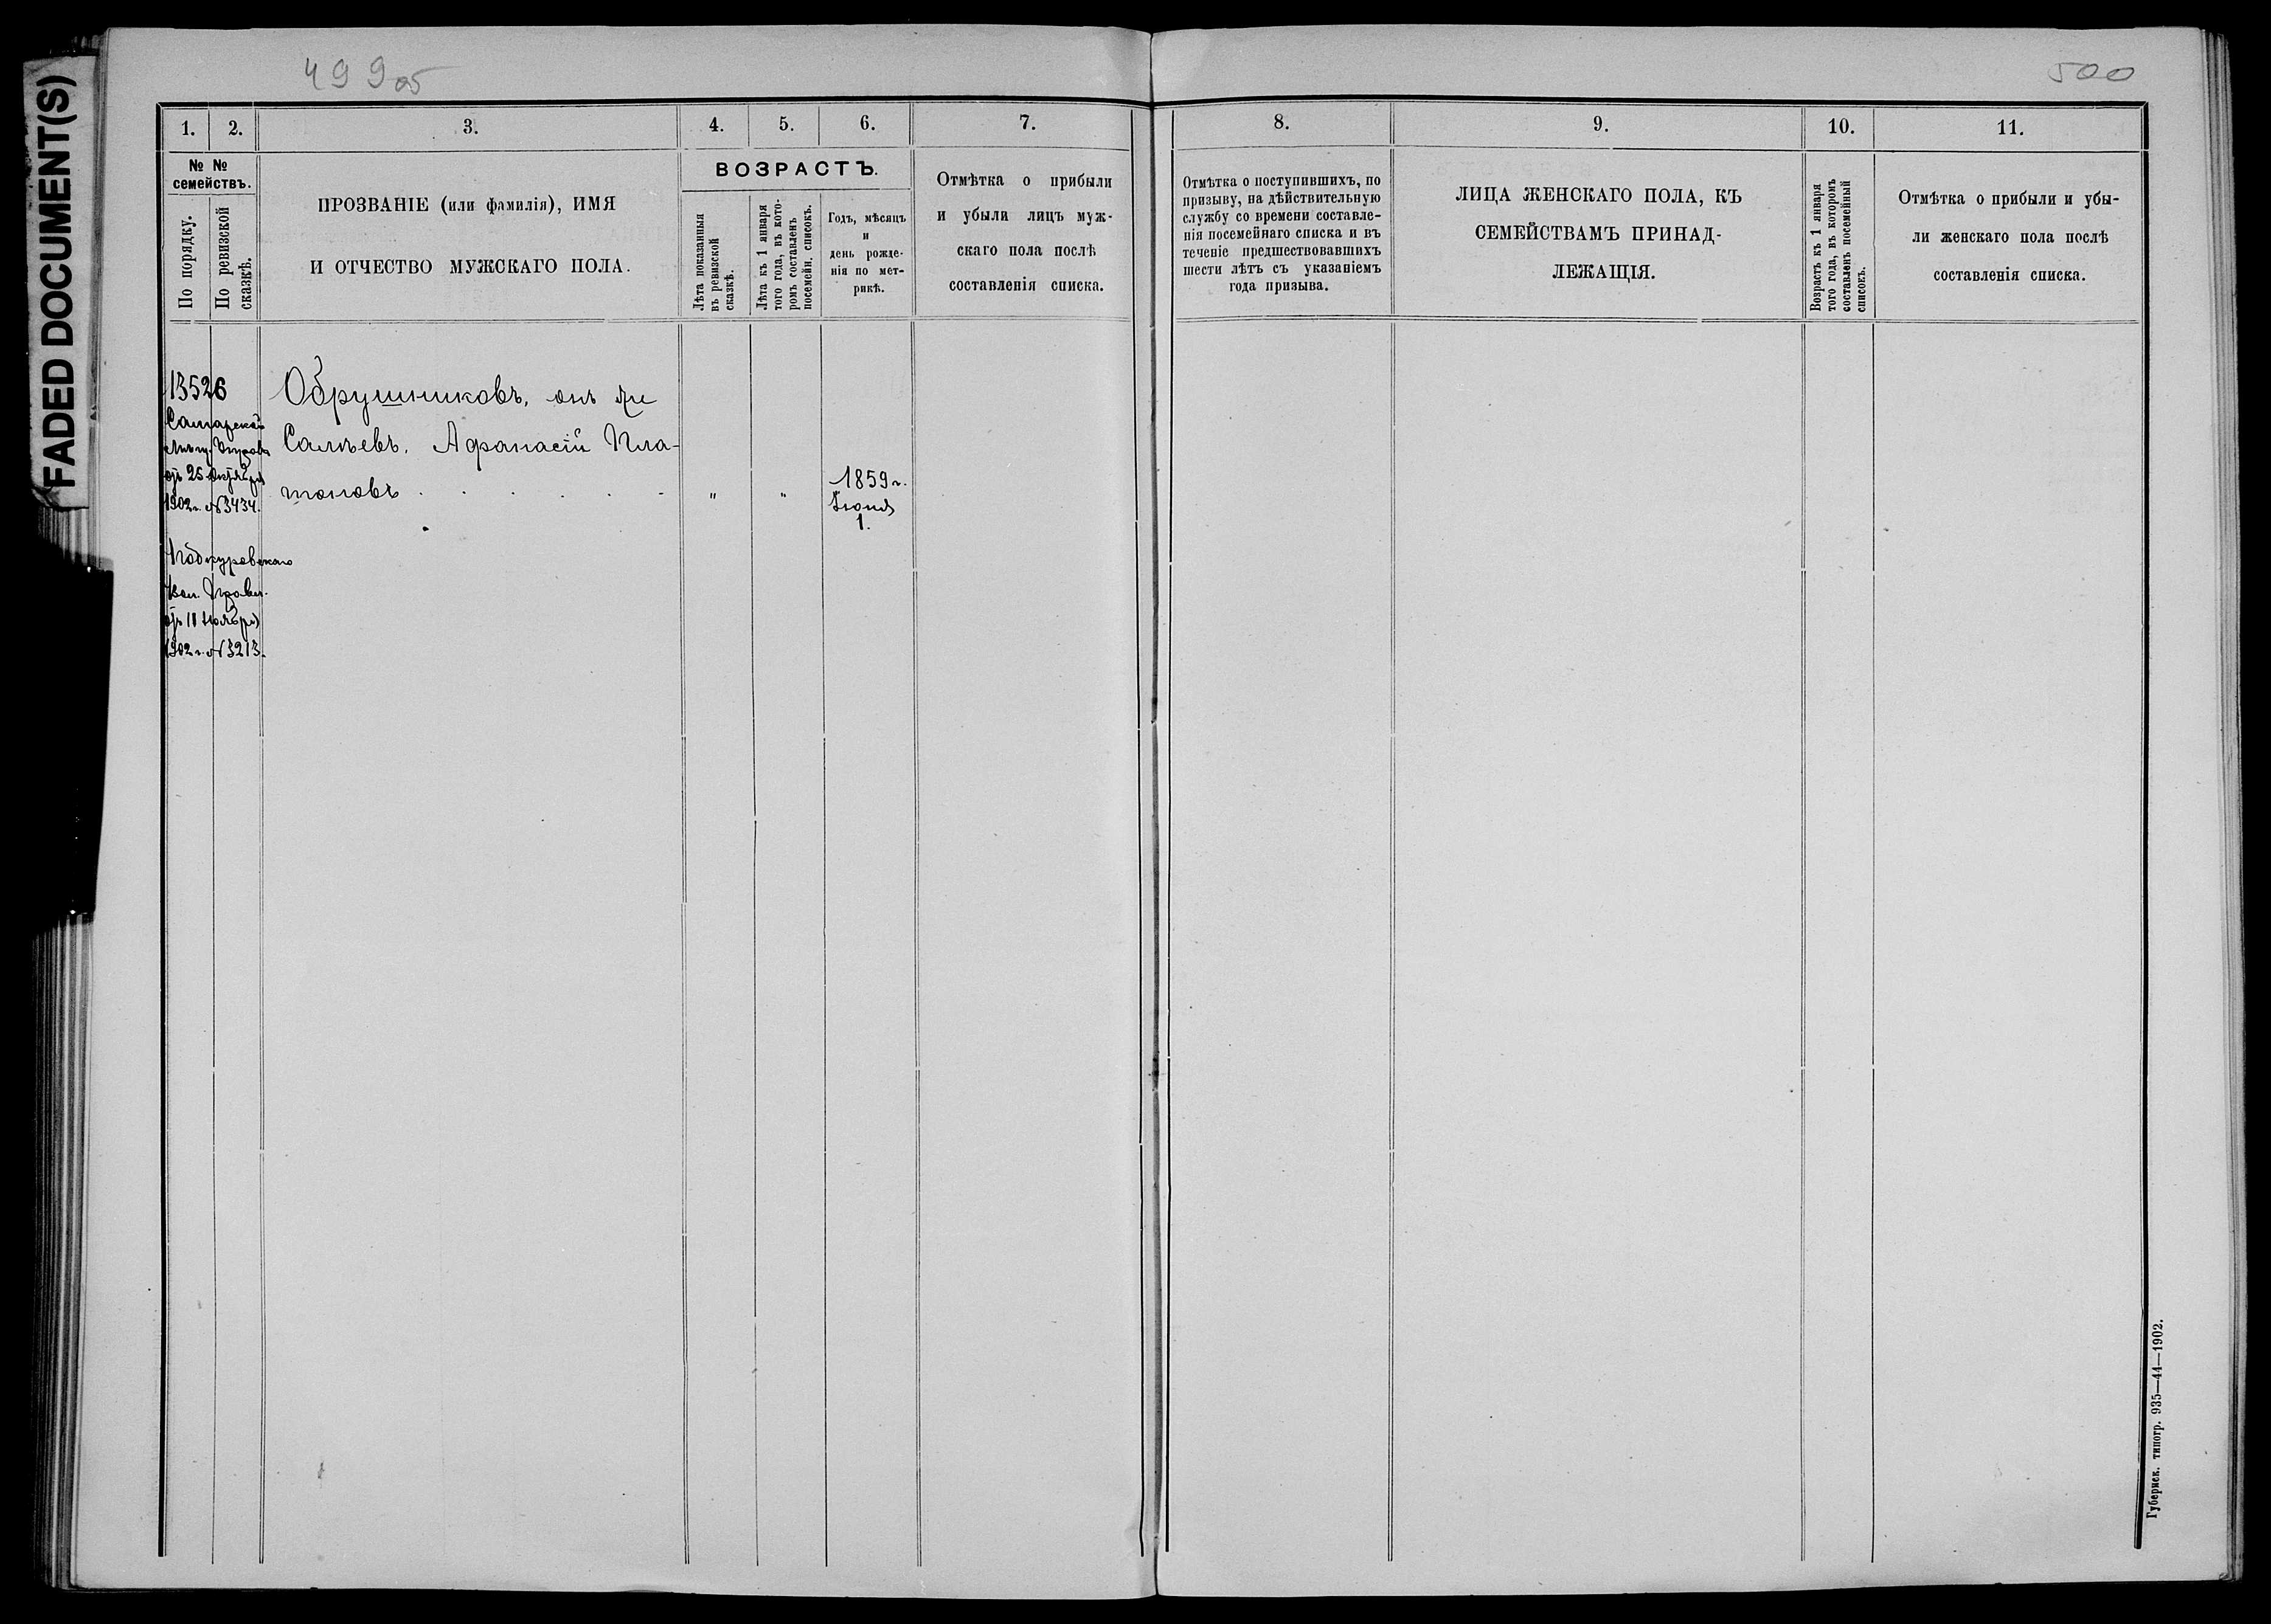 FADED DOCUMENT(S)
499об
500
1.
2.
3.
4.
5.
6.
7.
8.
9.
10.
11.
№ №
семействъ.
По порядку.
По ревизской
сказкѣ.
ПРОЗВАНІЕ (или фамилія), ИМЯ
И ОТЧЕСТВО МУЖСКАГО ПОЛА.
ВОЗРАСТЪ.
Лѣта показанныя
въ ревизской
сказкѣ.
Лѣта къ 1 января
того года, въ кото-
ромъ составленъ
посемейн. списокъ.
Годъ, мѣсяцъ
и
день рожде-
нія по мет-
рикѣ.
Отмѣтка о прибыли
и убыли лицъ муж-
скаго пола послѣ
составленія списка.
Отмѣтка о поступившихъ, по
призыву, на дѣйствительную
службу со времени составле-
нія посемейнаго списка и въ
теченіе предшествовавшихъ
шести лѣтъ съ указаніемъ
года призыва.
ЛИЦА ЖЕНСКАГО ПОЛА, КЪ
СЕМЕЙСТВАМЪ ПРИНАД-
ЛЕЖАЩІЯ.
Возрастъ къ 1 января
того года, въ которомъ
составленъ посемейный
списокъ.
Отмѣтка о прибыли и убы-
ли женскаго пола послѣ
составленія списка.
13526
Самарской
отъ 25 Октября
1902 г. №3434.
Вол. Правл.
отъ 11 Ноября
1902 г. №3213.
Обрушниковъ, онъ же
Салѣевъ, Афанасій Пла-
тоновъ . . . . . .
"
"
1859 г.
Іюня
1.
Губернск. типогр. 935—44—1902.